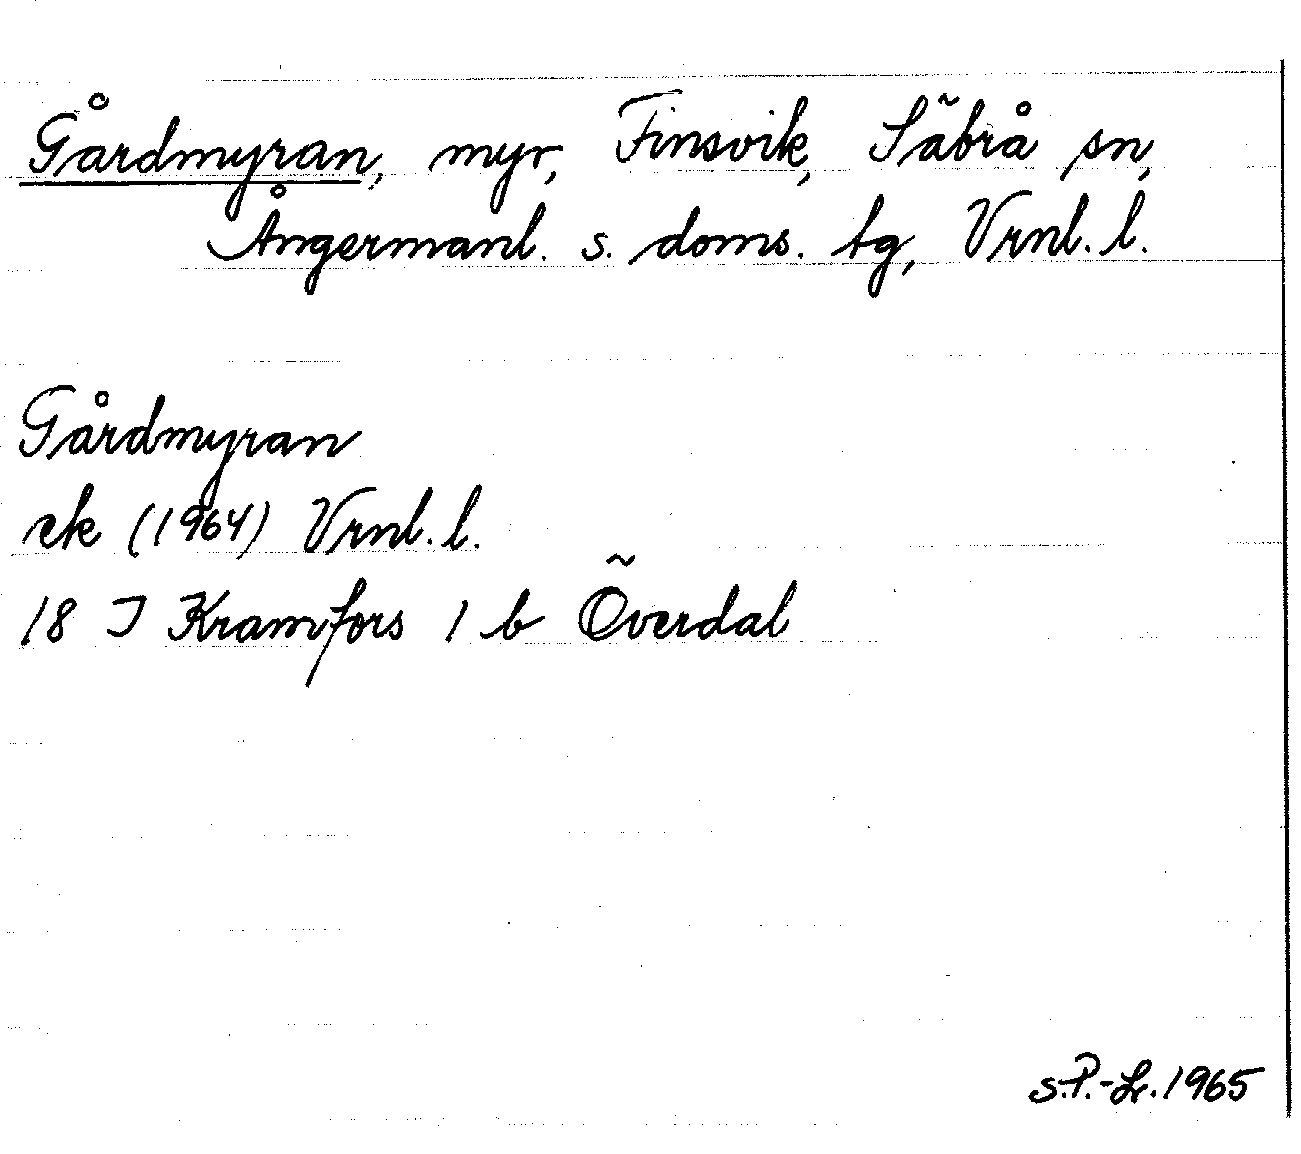 Gårdmyran, myr, Finsvik, Säbrå sn,
Ångermanl. s. doms. tg, Vrnl. l.
Gårdmyran
ek (1964) Vrnl. l.
18 I Kramfors 1 b Överdal
S.P.-Lr. 1965